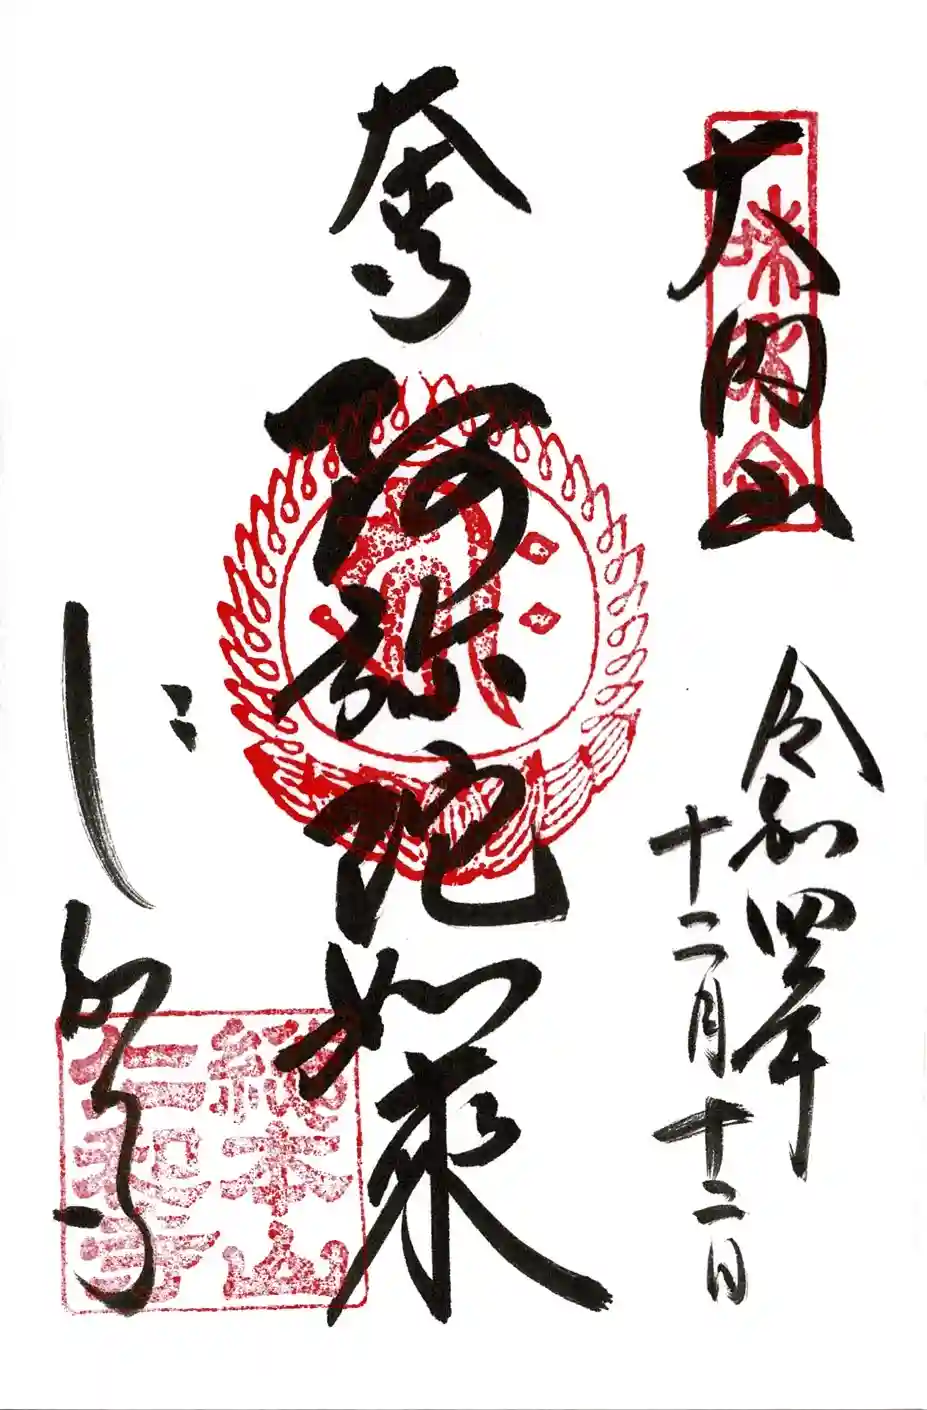 大内山
令和四年
十二月十二日
奉
阿弥陀如来
仁和寺
總本山
仁和寺